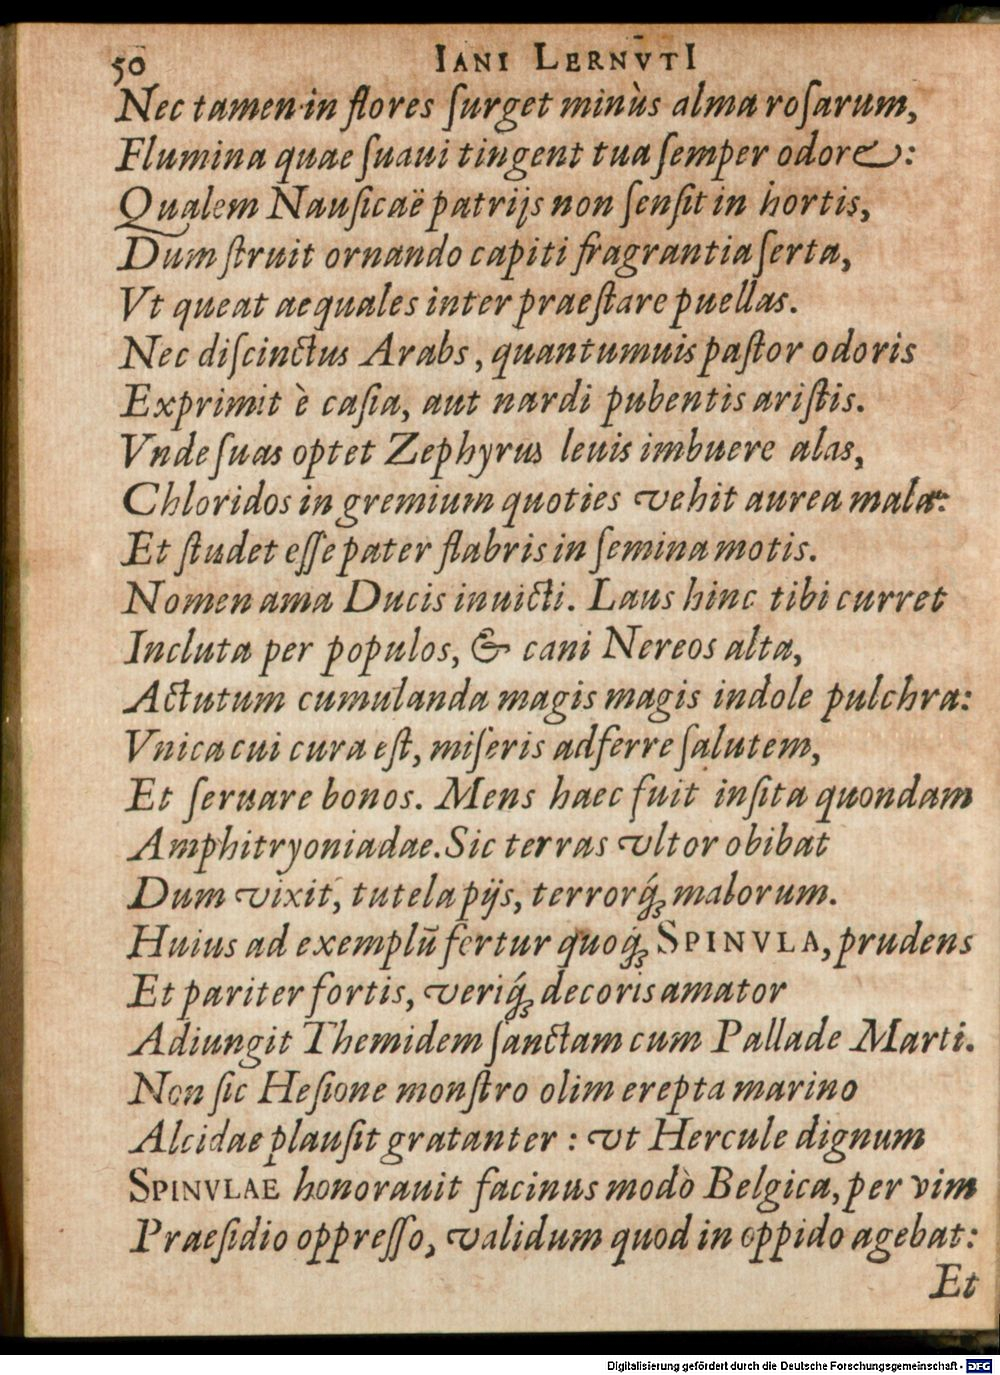 50 IANI LERNVTI
Nec tamen in flores ſurget minùs alma roſarum,
Flumina quae ſuaui tingent tua ſemper odore:
Qualem Nauſicaë patrijs non ſenſit in hortis,
Dum ſtruit ornando capiti fragrantia ſerta,
Vt queat aequales inter praeſtare puellas.
Nec diſcinctus Arabs, quantumuis paſtor odoris
Exprimit è caſia, aut nardi pubentis ariſtis.
Vnde ſuas optet Zephyrus leuis imbuere alas,
Chloridos in gremium quoties vehit aurea mala:
Et ſtudet eſſe pater flabris in ſemina motis.
Nomen ama Ducis inuicti. Laus hinc tibi curret
Incluta per populos, & cani Nereos alta,
Actutum cumulanda magis magis indole pulchra:
Vnica cui cura eſt, miſeris adferre ſalutem,
Et ſeruare bonos. Mens haec fuit inſita quondam
Amphitryoniadae. Sic terras vltor obibat
Dum vixit, tutela pijs, terrorq́; malorum.
Huius ad exemplū fertur quoq́; SPINVLA, prudens
Et pariter fortis, veriq́; decoris amator
Adiungit Themidem ſanctam cum Pallade Marti.
Non ſic Heſione monſtro olim erepta marino
Alcidae plauſit gratanter : vt Hercule dignum
SPINVLAE honorauit facinus modò Belgica, per vim
Praeſidio oppreſſo, validum quod in oppido agebat:
Et
Digitalisierung gefördert durch die Deutsche Forschungsgemeinschaft - DFG